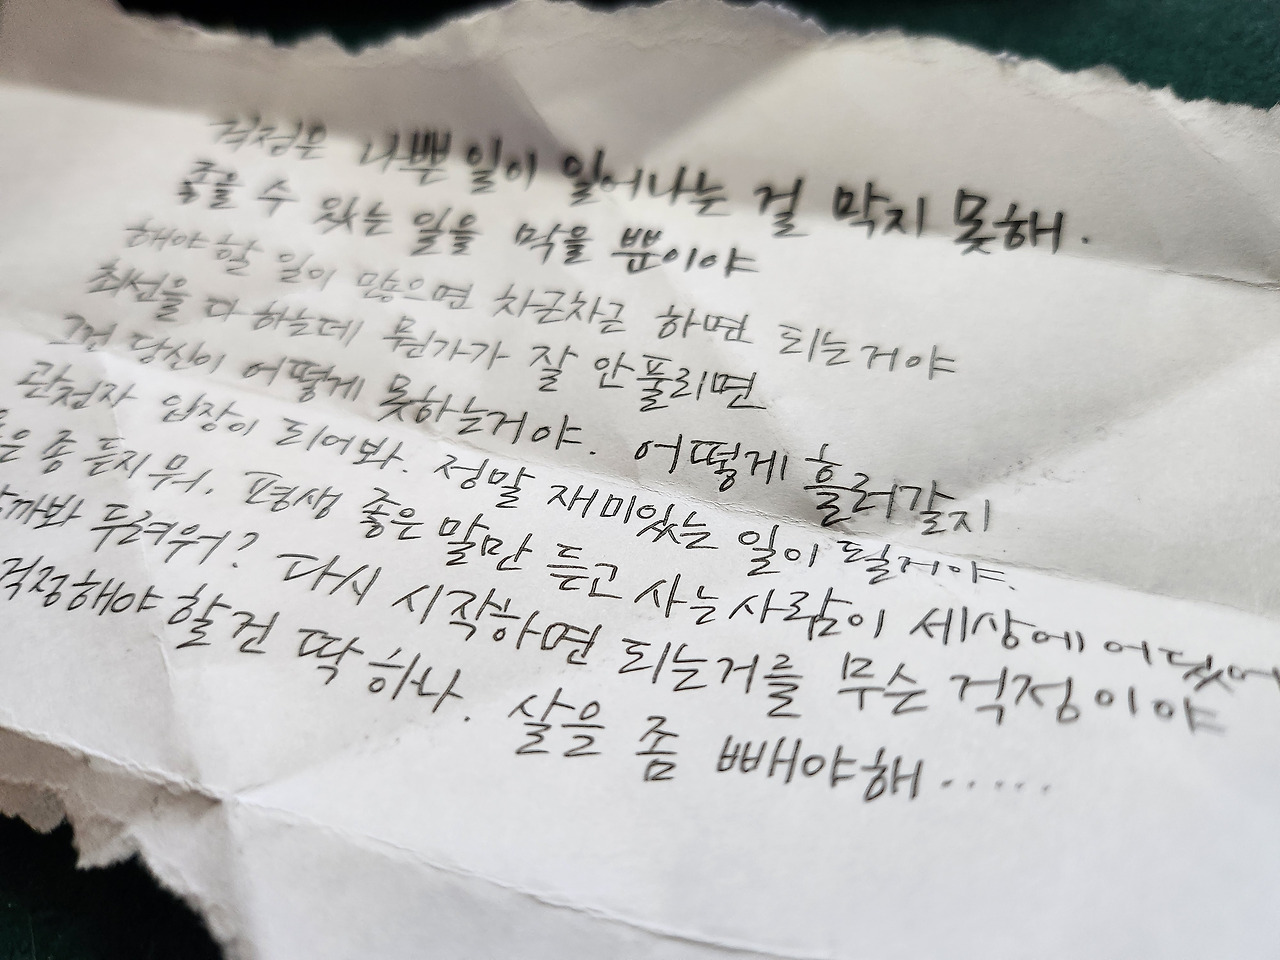 걱정은 나쁜 일이 일어나는 걸 막지 못해.
좋을 수 있는 일을 막을 뿐이야
해야할 일이 많으면 차근차근 하면 되는거야
최선을 다 하는데 뭔가가 잘 안풀리면
그건 당신이 어떻게 못하는거야. 어떻게 흘러갈지
관점자 입장이 되어봐. 정말 재미있는 일이 될거야.
좀 듣지 뭐. 평생 좋은 말만 듣고 사는 사람이 세상에 어딨어
두려워? 다시 시작하면 되는거를 무슨 걱정이야
걱정해야 할건 딱 하나. 살을 좀 빼야해.....